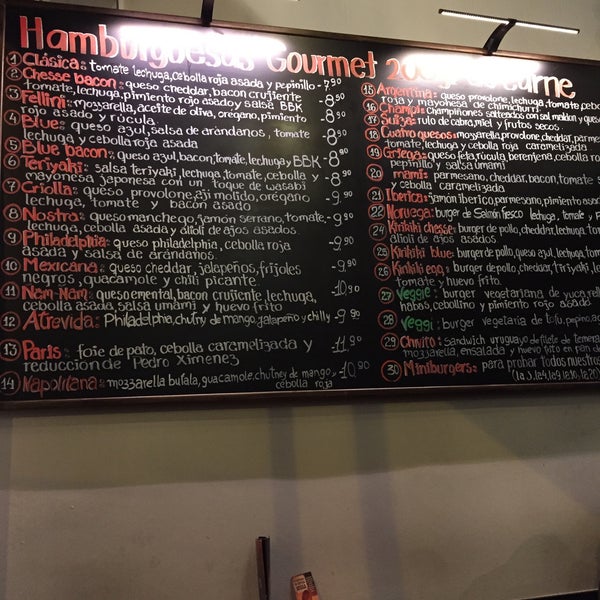 Hamburguesas Gourmet 200g de carne
1 Clásica: tomate lechuga, cebolla roja asada y pepinillo - 7,90
2 Chesse bacon: queso cheddar, bacon crujiente
tomate, lechuga, pimiento rojo asado y salsa BBK - 8,90
3 Fellini: mozzarella, aceite de oliva, oregano, pimiento
asado y rúcula - 8,90
4 Blue: queso azul, salsa de arándanos, tomate
lechuga y cebolla roja asada - 8,90
5 Blue bacon: queso azul, bacon, tomate, lechuga y BBK - 8,90
6 Teriyaki: salsa teriyaki, lechuga, tomate, cebolla y
mayonesa japonesa con un toque de wasabi - 8,90
7 Criolla: queso provolone, aji molido, orégano
lechuga, tomate y bacon asado - 9,90
8 Nostra: queso manchego, jamón serrano, tomate,
lechuga, cebolla asada y alioli de ajos asados - 9,90
9 Philadelphia: queso philadelphia, cebolla roja
asada y salsa de arándanos - 9,90
10 Mexicana: queso cheddar, jalapeños, frijoles
negros, guacamole y chili picante - 9,90
11 Nam-Nam: queso emental, bacon crujiente, lechuga,
cebolla asada, salsa umami y huevo frito - 10,90
12 Atrevida: Philadelphia, chutny de mango, jalapeño y chilly - 9,90
13 Paris: foie de pato, cebolla caramelizada y
reducción de Pedro Ximenez - 11,90
14 Napolitana: mozzarella bufala, guacamole, chutney de mango y
cebolla roja - 10,90
15 Argentina: queso provolone, lechuga, tomate, cebo
roja y mayonesa de chimichurri
16 Champi: champiñones salteados con sal maldon y que
17 Suiza: rulo de cabra, miel y frutos secos
18 Cuatro quesos: mozzarella, provolone, cheddar, parm
tomate, lechuga y cebolla roja caramelizada
19 Griega: queso feta, rúcula, berenjena, cebolla ro
pepinillo y salsa
20 mami: parmesano, cheddar, bacon, tomate s
y cebolla caramelizada
21 Iberica: jamón iberico, parmesano, pimiento asad
22 Noruega: burger de Salmón fresco lechuga, tomate y
24 Kirikiki chesse: burger de pollo, cheddar, lechuga, tom
alioli de ajos asados
25 Kirikiki blue: burger de pollo, queso azul, lechuga, tom
26 Kirikiki egg: burger de pollo, cheddar, tiriyaki, le
tomate y huevo frito
27 Veggie: burger vegetariana de
habas, cebollino y pimiento rojo asado
28 Veggi: burger vegetaria de tofu, pepino, ag
29 Chivito: Sandwich uruguayo de filete de ternera
mozzarella, ensalada y huevo frito en pan de
30 Miniburgers: para probar todos nuestros